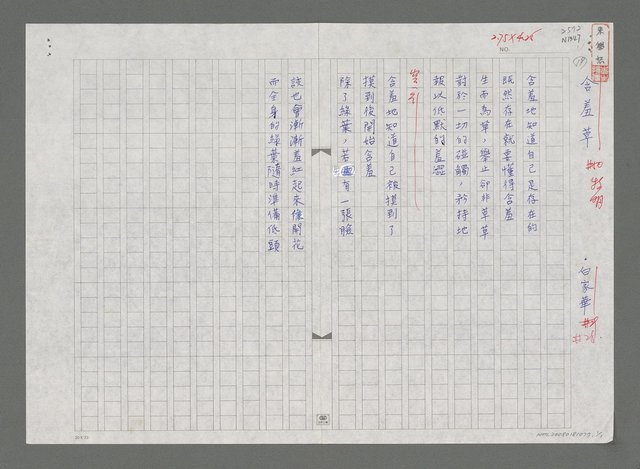 含羞草
白家華
含羞地知道自己是存在的
既然存在就要懂得含羞
生而為草，舉止卻非草草
對於一切的碰觸，矜持地
報以低默的羞澀
空一行
含羞地知道自己被摸到了
摸到後開始含羞
除了綠葉，若有一張臉
該也會漸漸羞紅起來像開花
而全身的綠葉隨時準備低頭
2.75×4.25
NO.
20×25